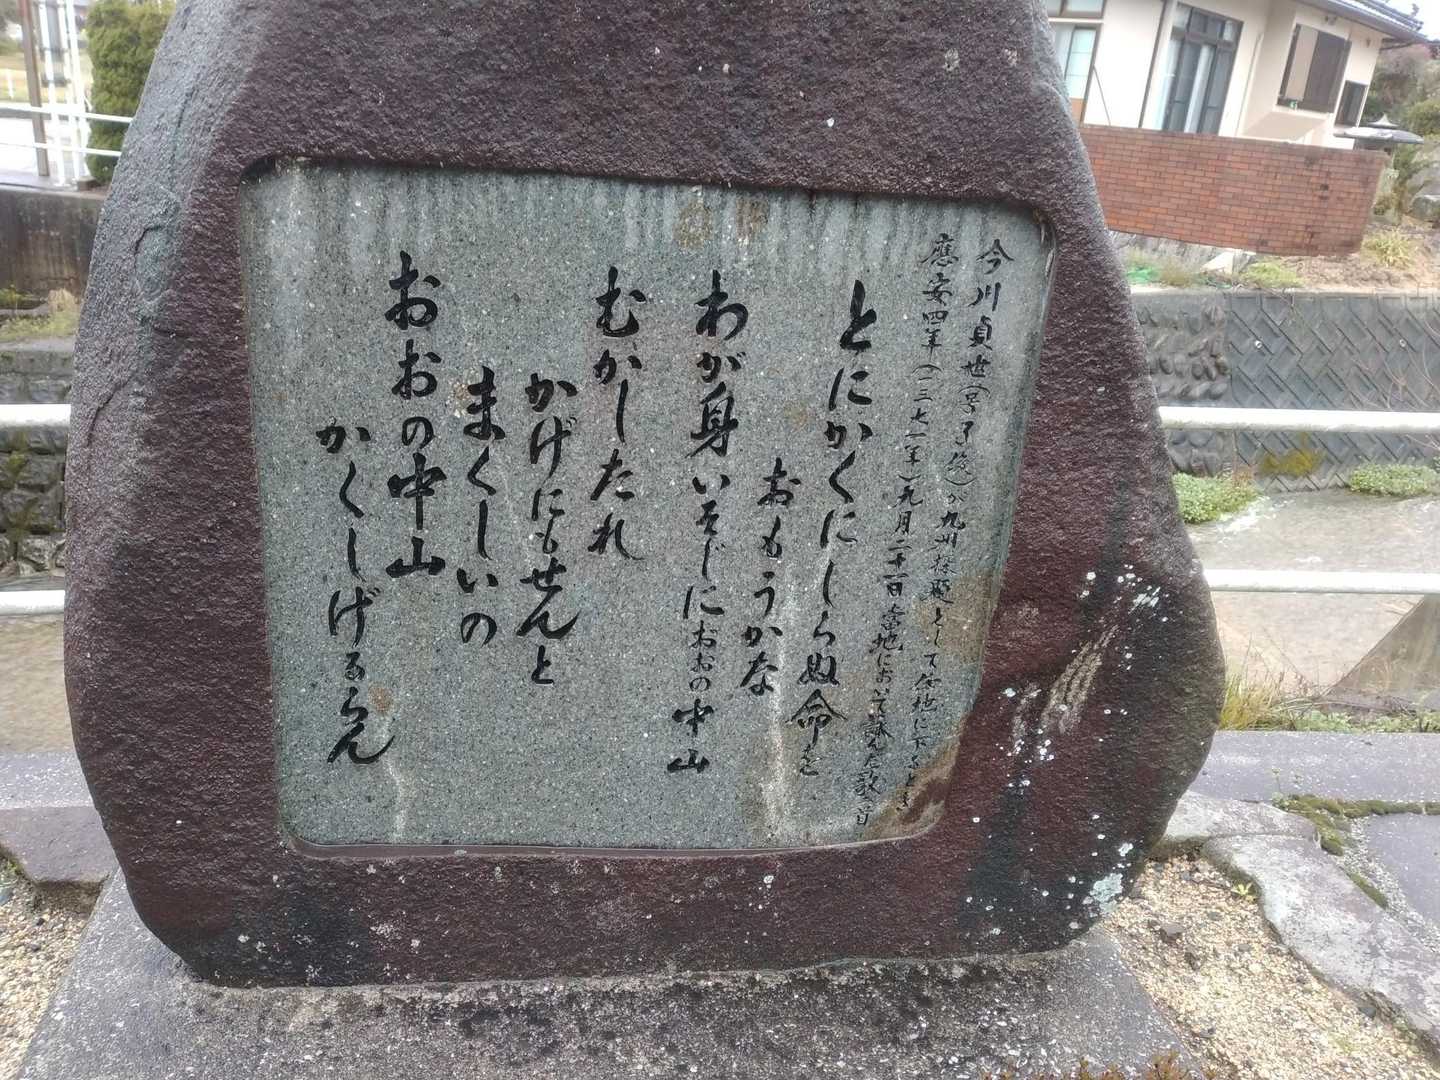 今川貞世(号了俊)が九州探題として任地に下るとき
應安四年(一三七一年)九月二十一日當地において詠んだ歌二首
とにかくにしらぬ命を
おもうかな
わが身いそじにおおの中山
むかしたれ
かげにもせんと
まくしいの
おおの中山
かくしげるらん